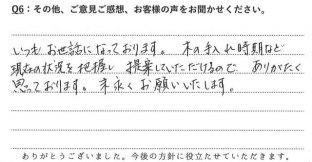 Q6：その他、ご意見ご感想、お客様の声をお聞かせください。
いつもお世話になっております。木の手入れ時期など
現在の状況を把握し提案していただけるので ありがたく
思っております。末永くお願いいたします。
ありがとうございました。今後の方針に役立たせていただきます。